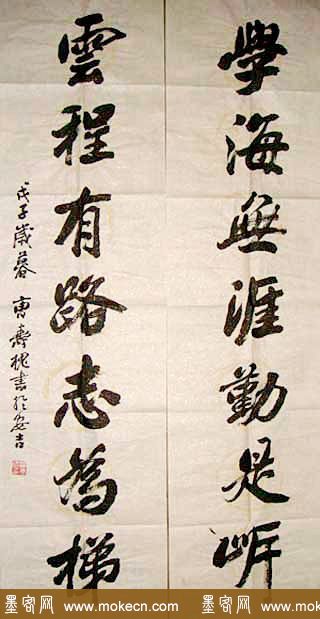 學海無涯勤是岸
雲程有路志為梯
戊子歲暮 曹壽槐書於安吉
墨客网 www.mokecn.com 墨客网 www.mokecn.com